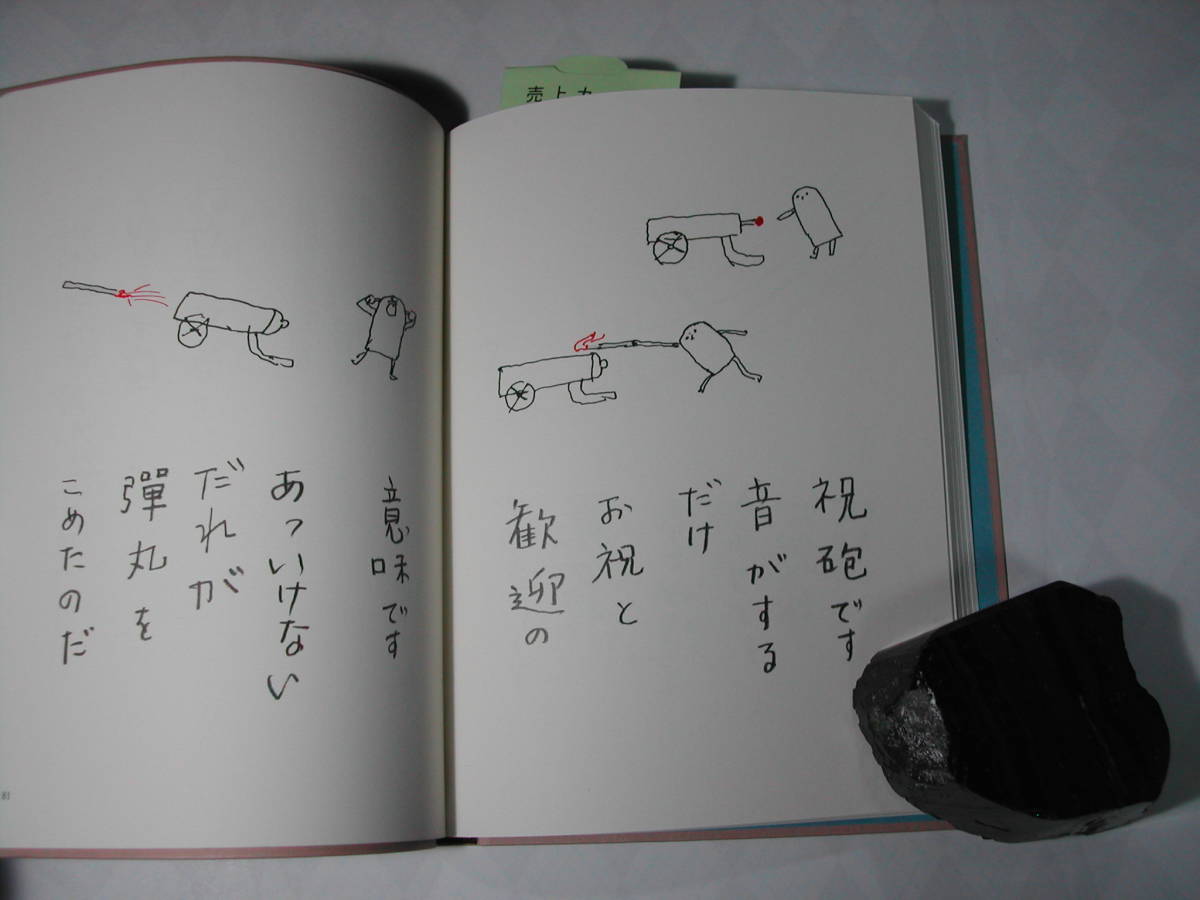 売上カ
祝砲です
音がする
だけ
お祝と
歓迎の
意味です
あっいけない
だれが
彈丸を
こめたのだ
81